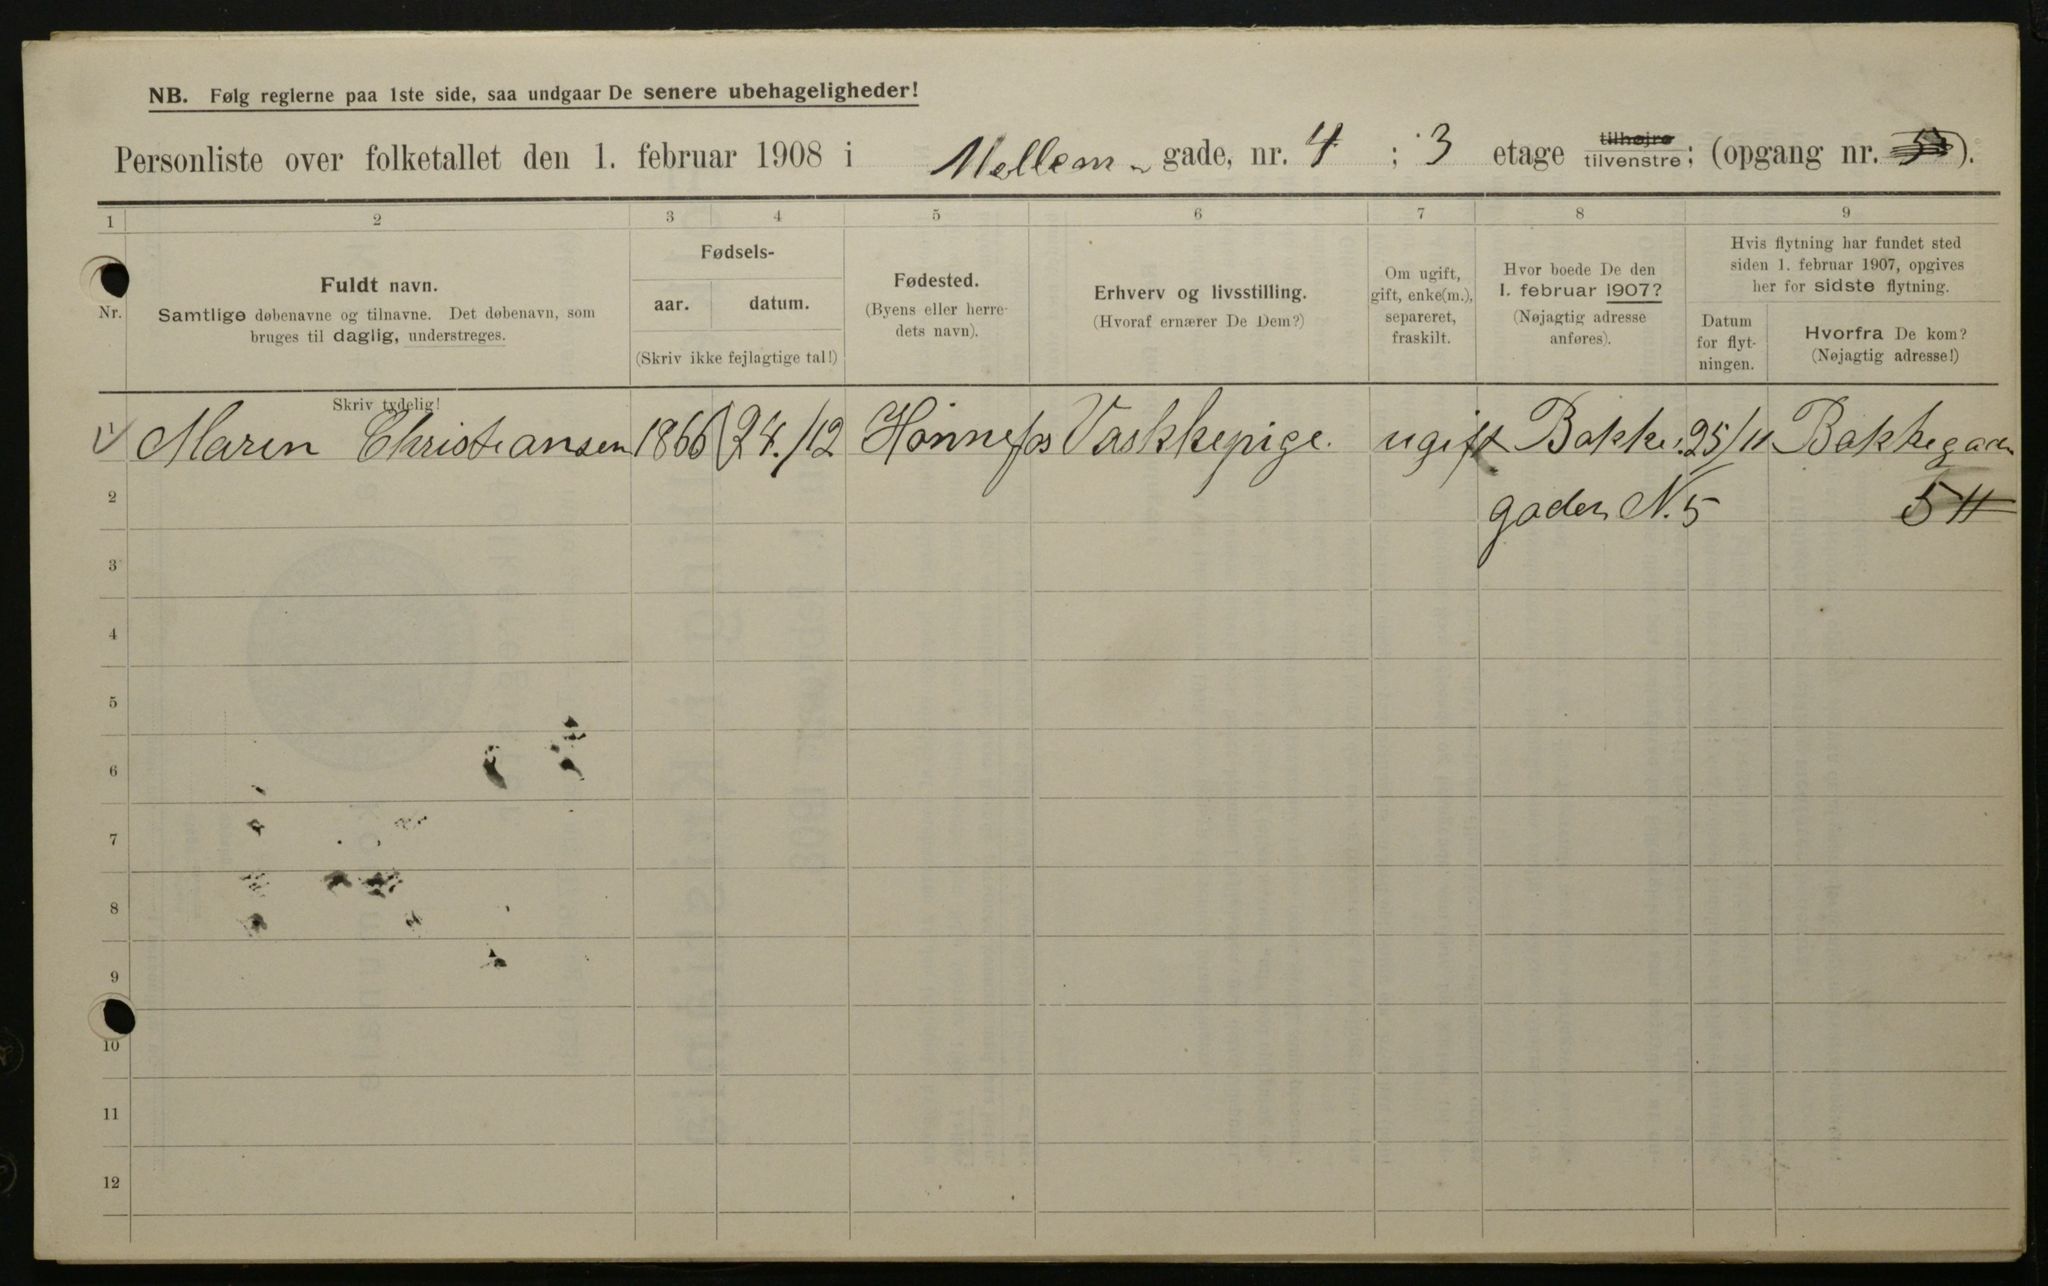 NB. Følg reglerne paa 1ste side, saa undgaar De senere ubehageligheder!
Personliste over folketallet den 1. februar 1908 i Mellem - gade, nr. 4 ; 3 etage tilhøjre tilvenstre; (opgang nr. ).
1 2 3 4 5 6 7 8 9
Nr.
Fuldt navn.
Samtlige døbenavne og tilnavne. Det døbenavn, som
bruges til daglig, understreges.
Skriv tydelig!
Fødsels-
aar. datum.
(Skriv ikke fejlagtige tal!)
Fødested.
(Byens eller herre-
dets navn).
Erhverv og livsstilling.
(Hvoraf ernærer De Dem?)
Om ugift,
gift, enke(m.),
separeret,
fraskilt.
Hvor boede De den
1. februar 1907?
(Nøjagtig adresse
anføres).
Hvis flytning har fundet sted
siden 1. februar 1907, opgives
her for sidste flytning.
Datum
for flyt-
ningen.
Hvorfra De kom?
(Nøjagtig adresse!)
1 Maren Christiansen 1866 24./12 Hønnefos Vaskkepige. ugift Bakke: 25/11 Bakkegaden
2 gaden N. 5 5 II
3
4
5
6
7
8
9
10
11
12